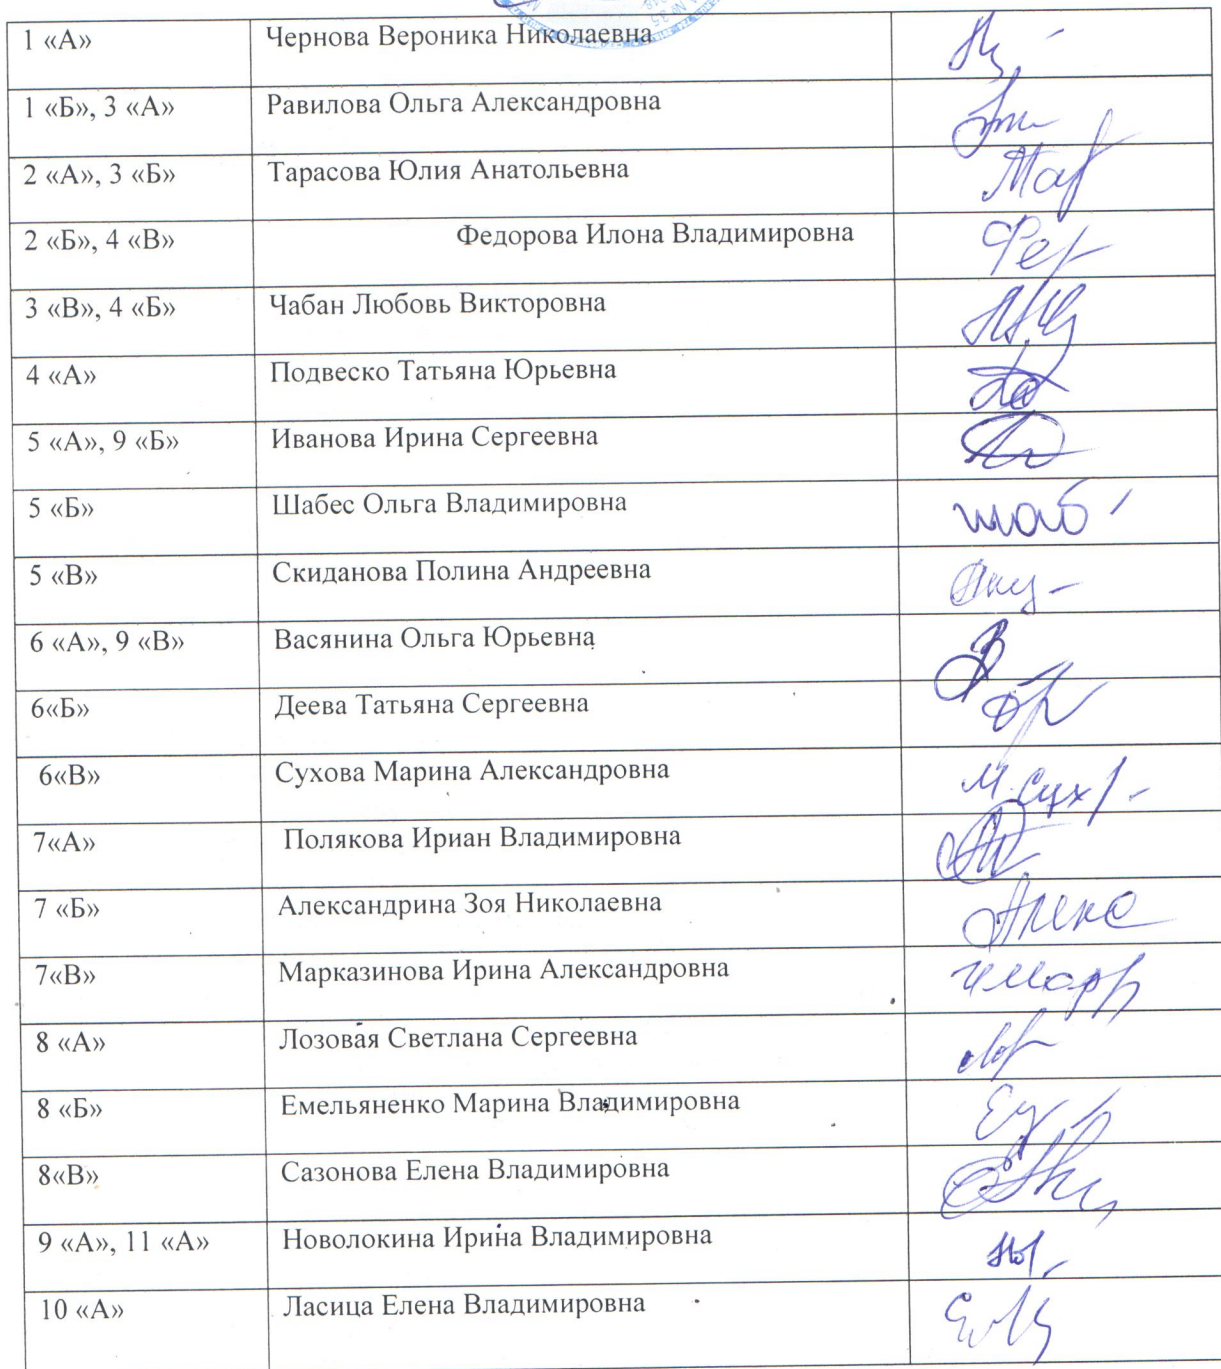 1 «А» Чернова Вероника Николаевна
1 «Б», 3 «А» Равилова Ольга Александровна
2 «А», 3 «Б» Тарасова Юлия Анатольевна
2 «Б», 4 «В» Федорова Илона Владимировна
3 «В», 4 «Б» Чабан Любовь Викторовна
4 «А» Подвеско Татьяна Юрьевна
5 «А», 9 «Б» Иванова Ирина Сергеевна
5 «Б» Шабес Ольга Владимировна
5 «В» Скиданова Полина Андреевна
6 «А», 9 «В» Васянина Ольга Юрьевна
6«Б» Деева Татьяна Сергеевна
6«В» Сухова Марина Александровна
7«А» Полякова Ириан Владимировна
7 «Б» Александрина Зоя Николаевна
7«В» Марказинова Ирина Александровна
8 «А» Лозовая Светлана Сергеевна
8 «Б» Емельяненко Марина Владимировна
8«В» Сазонова Елена Владимировна
9 «А», 11 «А» Новолокина Ирина Владимировна
10 «А» Ласица Елена Владимировна